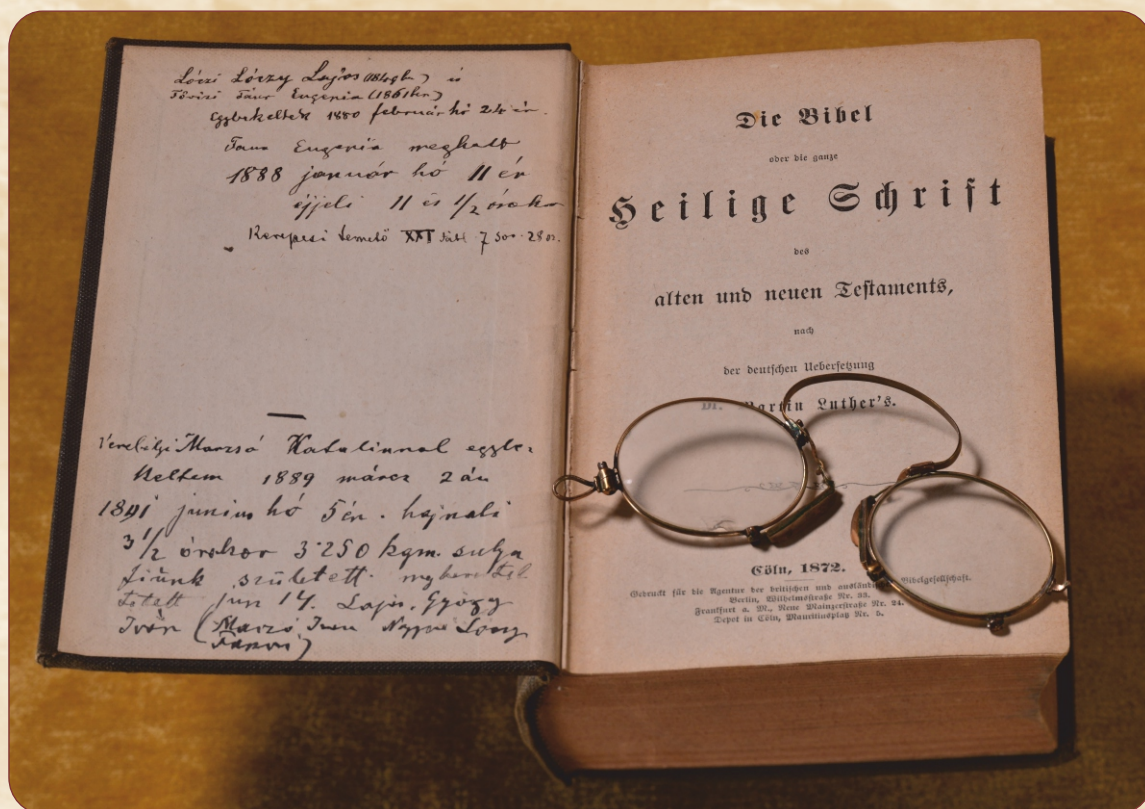 Lóczi Lóczy Lajos (1849ben) és
Eugenia (1861ben)
Egybekeltek 1880 február hó 24 én.
Eugenia meghalt
1888 január hó 11 én
éjjeli 11 és 1/2 órakor
Kerepesi temető XXI tábl. 7 sor. 28 sz.
Verebélyi Marzsó Katalinnal egybe-
keltem 1889 márcz 2 án
1891 junius hó 5én. hajnali
3 1/2 órakor 3·250 kgm. sulyu
fiúnk született.
Jun 14. Lajos, György
Iván (Iván Lóczy
Die Bibel
oder die ganze
Heilige Schrift
des
alten und neuen Testaments,
nach
der deutschen Uebersetzung
Dr. Martin Luther's.
Cöln, 1872.
Gedruckt für die Agentur der britischen und ausländischen Bibelgesellschaft.
Berlin, Wilhelmstraße Nr. 33.
Frankfurt a. M., Neue Mainzerstraße Nr. 24.
Depot in Cöln, Mauritiusplatz Nr. 5.